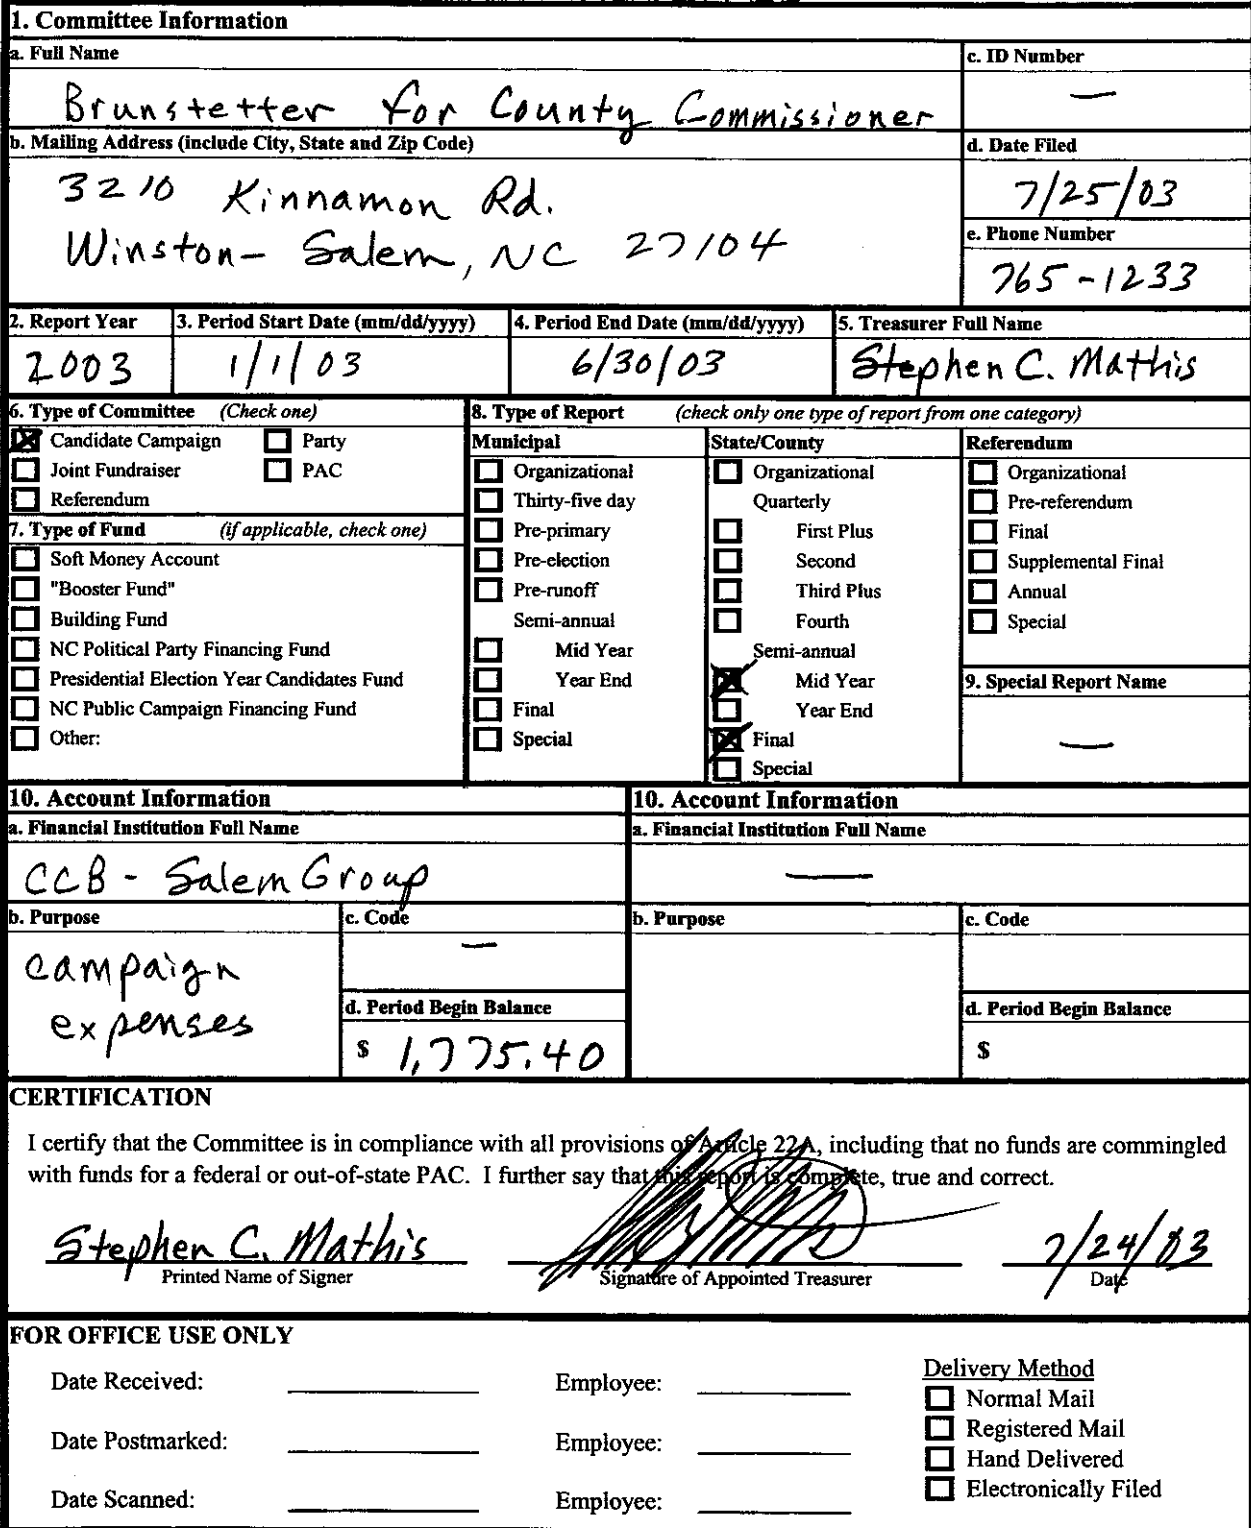 1. Committee Information
a. Full Name
c. ID Number
Brunstetter for County Commissioner
—
b. Mailing Address (include City, State and Zip Code)
d. Date Filed
3210 Kinnamon Rd.
7/25/03
Winston-Salem, NC 27104
e. Phone Number
765-1233
2. Report Year
3. Period Start Date (mm/dd/yyyy)
4. Period End Date (mm/dd/yyyy)
5. Treasurer Full Name
2003
1/1/03
6/30/03
Stephen C. Mathis
6. Type of Committee (Check one)
Candidate Campaign
Party
Joint Fundraiser
PAC
Referendum
7. Type of Fund (if applicable, check one)
Soft Money Account
"Booster Fund"
Building Fund
NC Political Party Financing Fund
Presidential Election Year Candidates Fund
NC Public Campaign Financing Fund
Other:
8. Type of Report (check only one type of report from one category)
Municipal
Organizational
Thirty-five day
Pre-primary
Pre-election
Pre-runoff
Semi-annual
Mid Year
Year End
Final
Special
State/County
Organizational
Quarterly
First Plus
Second
Third Plus
Fourth
Semi-annual
Mid Year
Year End
Final
Special
Referendum
Organizational
Pre-referendum
Final
Supplemental Final
Annual
Special
9. Special Report Name
—
10. Account Information
a. Financial Institution Full Name
CCB - Salem Group
b. Purpose
campaign
expenses
c. Code
—
d. Period Begin Balance
$ 1,775.40
10. Account Information
a. Financial Institution Full Name
—
b. Purpose
c. Code
d. Period Begin Balance
$
CERTIFICATION
I certify that the Committee is in compliance with all provisions of Article 22A, including that no funds are commingled
with funds for a federal or out-of-state PAC. I further say that this report is complete, true and correct.
Stephen C. Mathis
7/24/03
Printed Name of Signer
Signature of Appointed Treasurer
Date
FOR OFFICE USE ONLY
Date Received:
Employee:
Date Postmarked:
Employee:
Date Scanned:
Employee:
Delivery Method
Normal Mail
Registered Mail
Hand Delivered
Electronically Filed